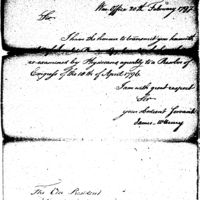 War Office 20th February 1797.
Sir
I have the honour to transmit you herewith
re-examined by Physicians agreeably to a Resolve of
Congress of the 18th of April 1796.
I am with great respect
Sir
your obedient Servant
James McHenry
The
President